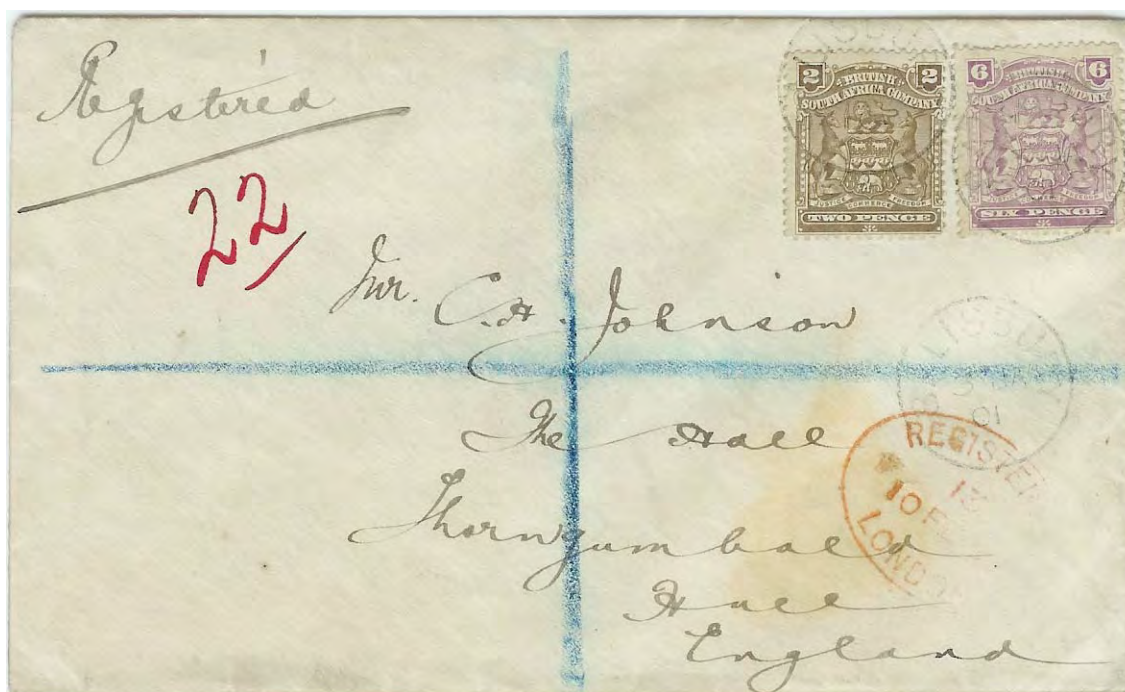 Registered
22
2 2
BRITISH
SOUTH AFRICA COMPANY
JUSTICE COMMERCE FREEDOM
TWO PENCE
6 6
BRITISH
SOUTH AFRICA COMPANY
JUSTICE COMMERCE FREEDOM
SIX PENCE
C.H. Johnson
The Hall
Thorngumbald
Hull
England
SALISBURY
01
REGISTERED
LONDON